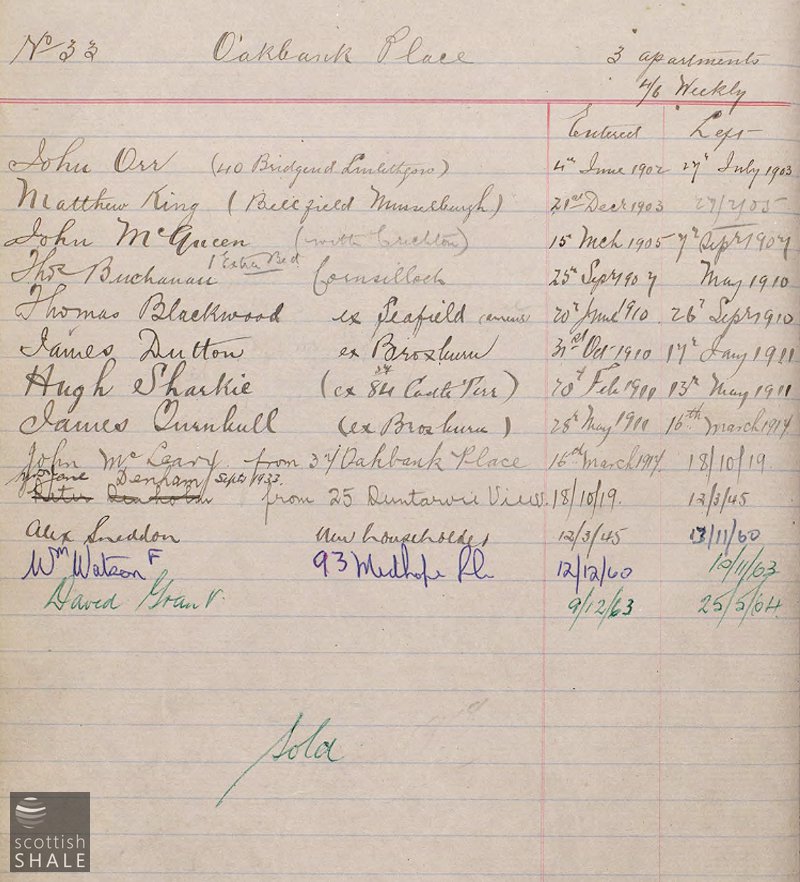 No 33 Oakbank Place 3 apartments
4/6 Weekly
Entered Left
John Orr (40 Bridgend Linlithgow) 4th June 1902 27th July 1903
Matthew King (Bellfield Musselburgh) 21st Decr 1903 27/2/05
John McQueen (with Crichton) 15 Mch 1905 7th Sepr 1907
1 Extra Bed
Thos Buchanan Cornsilloch 25th Sepr 1907 May 1910
Thomas Blackwood ex Seafield 20th June 1910 26th Sepr 1910
James Dutton ex Broxburn 31st Oct 1910 17th Jany 1911
Hugh Sharkie (ex 84 Castle Terr) 20th Feb 1911 13th May 1911
James Turnbull (ex Broxburn) 25th May 1911 16th March 1914
John McLeary from 37 Oakbank Place 16th March 1914. 18/10/19.
Jane Denham Sept 1933.
Peter Denholm from 25 Duntarvie View. 18/10/19. 12/3/45
Alex Sneddon New householder 12/3/45 13/11/60
Wm Watson 93 Midhope Pl. 12/12/60 10/11/63
David Grant 9/12/63 25/5/64.
Sold
scottish
SHALE